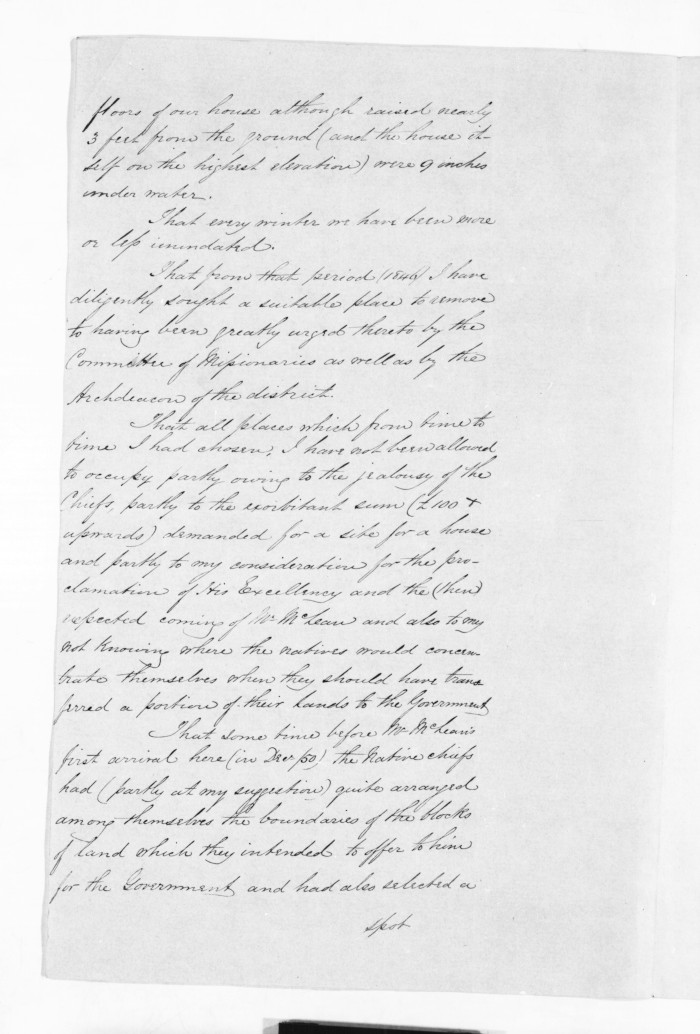 floors of our house although raised nearly
3 feet from the ground (and the house it-
self on the highest elevation) were 9 inches
under water.
That every winter we have been more
or less inundated.
That from that period (1846) I have
diligently sought a suitable place to remove
to having been greatly urged thereto by the
Committee of Missionaries as well as by the
Archdeacon of the district.
That all places which from time to
time I had chosen, I have not been allowed
to occupy partly owing to the jealousy of the
Chiefs, partly to the exorbitant sum (£100 &
upwards) demanded for a site for a house
and partly to my consideration for the pro-
clamation of His Excellency and the (then)
expected coming of Mr McLean and also to my
not knowing where the natives would concen-
trate themselves when they should have trans
ferred a portion of their lands to the Government
That some time before Mr McLean's
first arrival here (in Decr /50) the Native chiefs
had (partly at my suggestion) quite arranged
among themselves the boundaries of the blocks
of land which they intended to offer to him
for the Government and had also selected a
spot